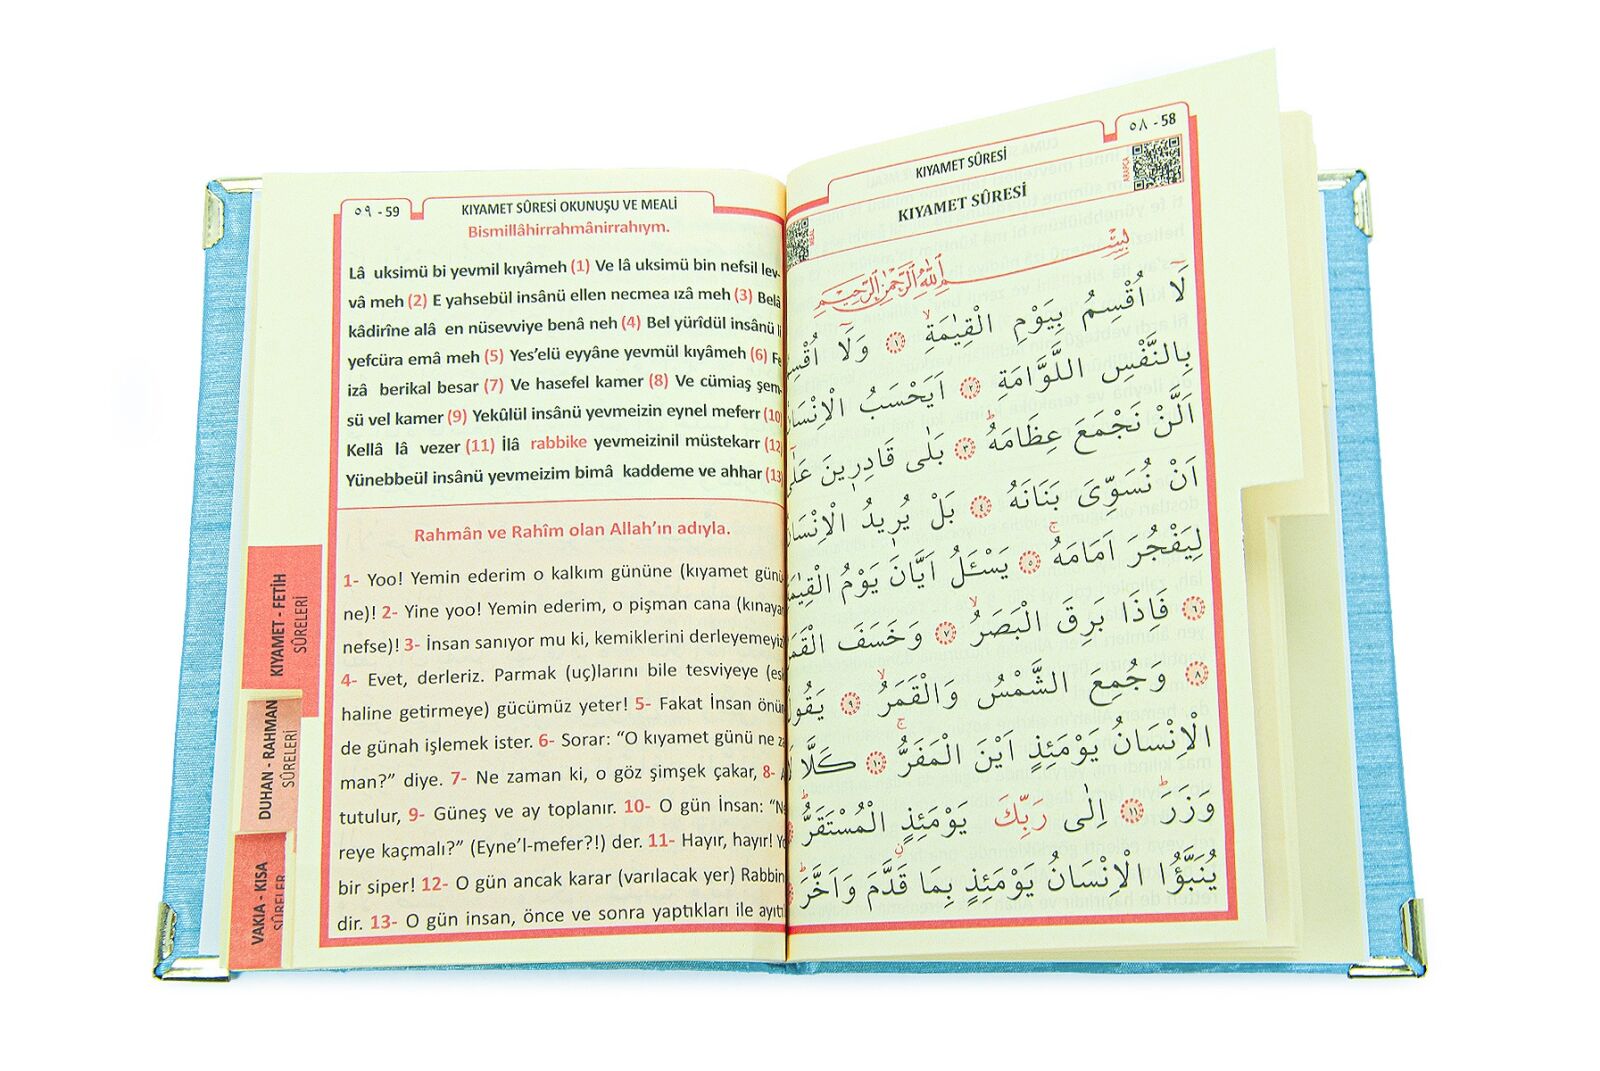 ٥٩ - 59
KIYAMET SÛRESİ OKUNUŞU VE MEALİ
Bismillâhirrahmânirrahıym.
Lâ uksimü bi yevmil kıyâmeh (1) Ve lâ uksimü bin nefsil lev-
vâ meh (2) E yahsebül insânü ellen necmea ızâ meh (3) Belâ
kâdirîne alâ en nüsevviye benâ neh (4) Bel yürîdül insânü li
yefcüra emâ meh (5) Yes’elü eyyâne yevmül kıyâmeh (6) Fe
izâ berikal besar (7) Ve hasefel kamer (8) Ve cümiaş şem-
sü vel kamer (9) Yekûlül insânü yevmeizin eynel meferr (10)
Kellâ lâ vezer (11) İlâ rabbike yevmeizinil müstekarr (12)
Yünebbeül insânü yevmeizim bimâ kaddeme ve ahhar (13)
Rahmân ve Rahîm olan Allah’ın adıyla.
1- Yoo! Yemin ederim o kalkım gününe (kıyamet günü
ne)! 2- Yine yoo! Yemin ederim, o pişman cana (kınaya
nefse)! 3- İnsan sanıyor mu ki, kemiklerini derleyemeyiz
4- Evet, derleriz. Parmak (uç)larını bile tesviyeye (es
haline getirmeye) gücümüz yeter! 5- Fakat İnsan önün
de günah işlemek ister. 6- Sorar: “O kıyamet günü ne za
man?” diye. 7- Ne zaman ki, o göz şimşek çakar, 8-
tutulur, 9- Güneş ve ay toplanır. 10- O gün İnsan: “Ne
reye kaçmalı?” (Eyne’l-mefer?!) der. 11- Hayır, hayır! Yo
bir siper! 12- O gün ancak karar (varılacak yer) Rabbin
dir. 13- O gün insan, önce ve sonra yaptıkları ile ayıtı
KIYAMET - FETİH
SÛRELERİ
DUHAN - RAHMAN
SÛRELERİ
VAKIA - KISA
SÛRELER
٥٨ - 58
KIYAMET SÛRESİ
KIYAMET SÛRESİ
ARAPÇA
بِسْمِ اللّٰهِ الرَّحْمٰنِ الرَّحِيمِ
لَٓا اُقْسِمُ بِيَوْمِ الْقِيٰمَةِۙ ﴿١﴾ وَلَٓا اُقْسِمُ
بِالنَّفْسِ اللَّوَّامَةِ ﴿٢﴾ اَيَحْسَبُ الْاِنْسَانُ
اَلَّنْ نَجْمَعَ عِظَامَهُۜ ﴿٣﴾ بَلٰى قَادِر۪ينَ عَلٰٓى
اَنْ نُسَوِّيَ بَنَانَهُ ﴿٤﴾ بَلْ يُر۪يدُ الْاِنْسَانُ
لِيَفْجُرَ اَمَامَهُۚ ﴿٥﴾ يَسْـَٔلُ اَيَّانَ يَوْمُ الْقِيٰمَةِ
﴿٦﴾ فَاِذَا بَرِقَ الْبَصَرُۙ ﴿٧﴾ وَخَسَفَ الْقَمَرُ
﴿٨﴾ وَجُمِعَ الشَّمْسُ وَالْقَمَرُۙ ﴿٩﴾ يَقُولُ
الْاِنْسَانُ يَوْمَئِذٍ اَيْنَ الْمَفَرُّۚ ﴿١٠﴾ كَلَّا لَا
وَزَرَۜ ﴿١١﴾ اِلٰى رَبِّكَ يَوْمَئِذٍۨ الْمُسْتَقَرُّۜ
يُنَبَّؤُا الْاِنْسَانُ يَوْمَئِذٍ بِمَا قَدَّمَ وَاَخَّرَۜ